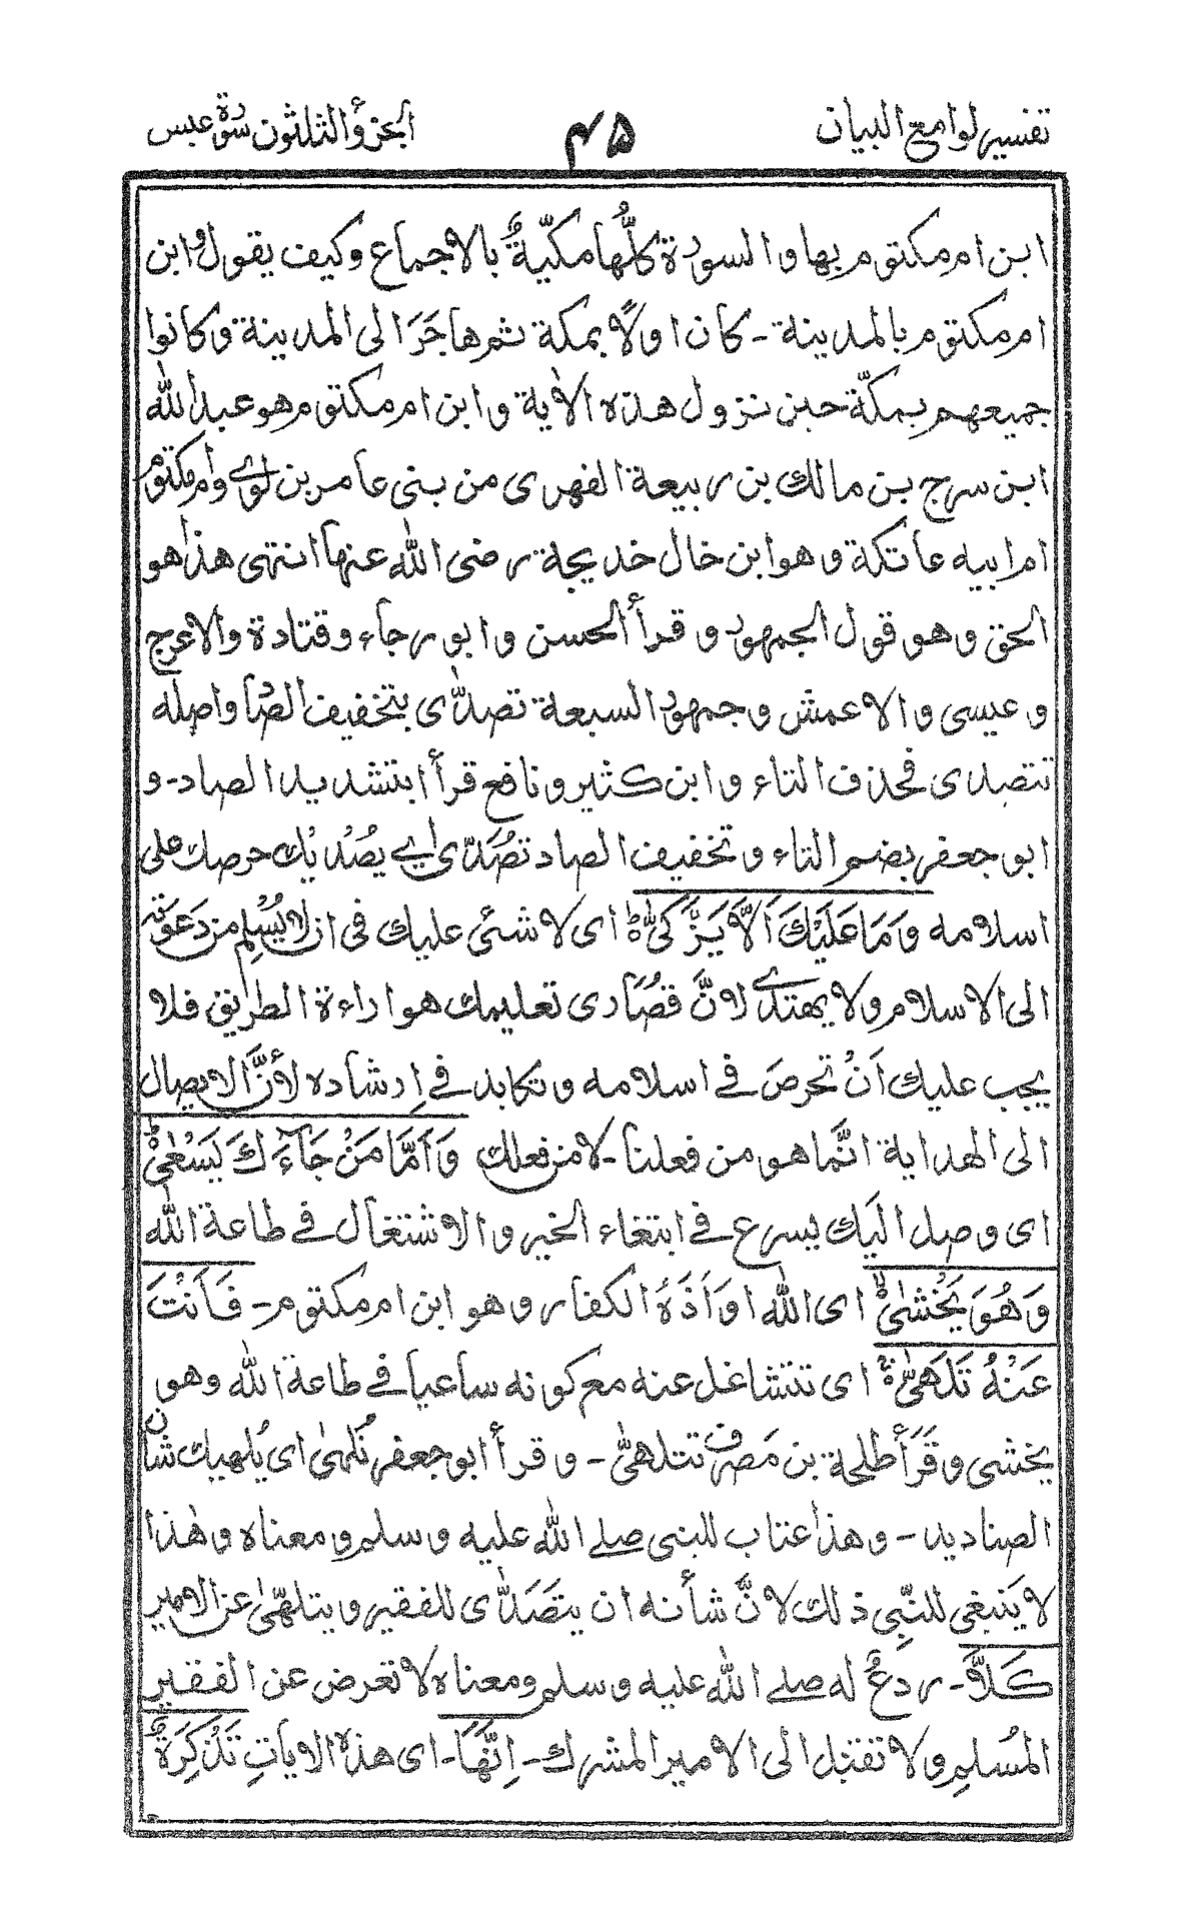 تفسير لوامع البيان ٤٥ الجزؤ الثلثون سورة عبس
ابن ام مكتوم بها والسورة كلُّها مكيّةٌ بالاجماع وكيف يقول وابن
ام مكتوم بالمدينة - كان اولًا بمكة ثم هاجَرَ الى المدينة وكانوا
جميعهم بمكّة حين نزول هذه الاٰية وابن ام مكتوم هو عبد الله
ابن سرج بن مالك بن ربيعة الفهرى من بنى عامر بن لوى وام مكتوم
ام ابيه عاتكة وهو ابن خال خديجة رضى الله عنها انتهى هذا هو
الحق وهو قول الجمهور و قرأ الحسن وابو رجاء وقتادة والاعرج
وعيسى والاعمش وجمهور السبعة تصدّٰى بتخفيف الصاد واصله
تتصدى فحذف التاء وابن كثير ونافع قرأ ابتشديد الصاد - و
ابو جعفر بضم التاء وتخفيف الصاد تصُدّى اى يصُدْيُك حرصك على
اسلامه وَمَا عَلَيْكَ اَلَّا يَزَّكّٰى اى لا شئ عليك فى ان لا يُسْلِم من دَعَوْتَه
الى الاسلام ولا يهتدى لانَّ قصُارى تعليمك هو اراءة الطريق فلا
يجب عليك انْ تحرصَ فى اسلامه وتكابد فى اِرشاده لأنَّ الايصال
الى الهداية انَّما هو من فعلنا - لا من فعلك وَاَمَّا مَنْ جَآءَكَ يَسْعٰى
اى وصل اليَك يسرع فى ابتغاء الخير والاشتغال فى طاعة الله
وَهُوَ يَخْشٰى اى الله اوَاَذَهُ الكفار وهو ابن ام مكتوم - فَاَنْتَ
عَنْهُ تَلَهّٰى اى تتشاغل عنه مع كونه ساعيا فى طاعة الله وهو
يخشى وقَرَأ طلحة بن مَصرف تتلهّٰى - وقرأ ابو جعفر تُلهىٰ اى يُلهيك شان
الصناديد - وهذا عتاب للنبى صلى الله عليه وسلم ومعناه وهٰذا
لا يَنبغى للنَّبِى ذلك لانَّ شأنه ان يتصَدّٰى للفقير ويتلهّىٰ عن الامير
كَلَّا - ردعٌ له صلى الله عليه وسلم ومعناه لا تعرض عن الفقير
المُسلمِ ولا تقتبل الى الامير المشرك - اِنَّهَا - اى هذه الاياتِ تَذْكِرَةٌ